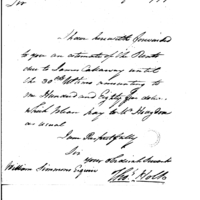 Sir
I have herewith forwarded
to you an estimate of the Rents
due to James Calaway until
the 30th Ultimo amounting to
one Hundred and Eighty five dollars
which please pay to Wm Haydon
as usual
I am Respectfully
Sir
your Obedient Servant
William Simmons Esquire
Thos Holt